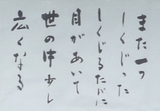 また一つ
しくじった
しくじるたびに
目があいて
世の中少し
広くなる